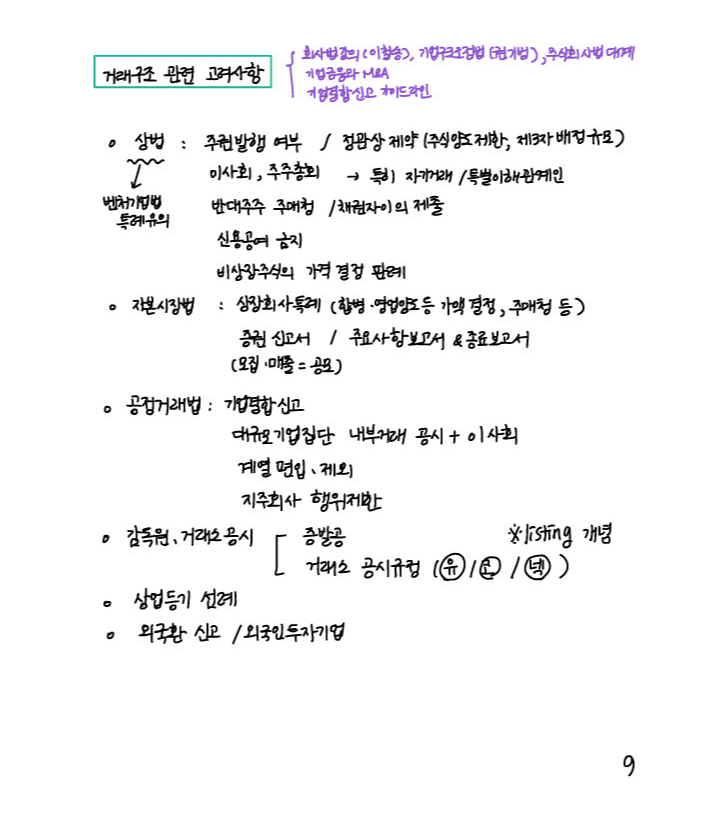 거래구조 관련 고려사항
회사법강의(이철송), 기업구조조정법(권기범), 주식회사법대계
기업금융과 M&A
기업결합신고 가이드라인
o 상법 : 주권발행 여부 / 정관상 제약(주식양도제한, 제3자배정규모)
이사회, 주주총회 → 특히 자기거래/특별이해관계인
벤처기업법
특례유의
반대주주 주매청 /채권자이의 제출
신용공여 금지
비상장주식의 가격결정 판례
o 자본시장법 : 상장회사특례 (합병·영업양도등 가액결정, 주매청 등)
증권신고서 / 주요사항보고서 & 종료보고서
(모집·매출=공모)
o 공정거래법 : 기업결합신고
대규모기업집단 내부거래 공시 + 이사회
계열편입、제외
지주회사 행위제한
o 감독원、거래소공시 증발공 ※listing 개념
거래소 공시규정 (유/코/넥)
o 상업등기 선례
o 외국환 신고 /외국인투자기업
9